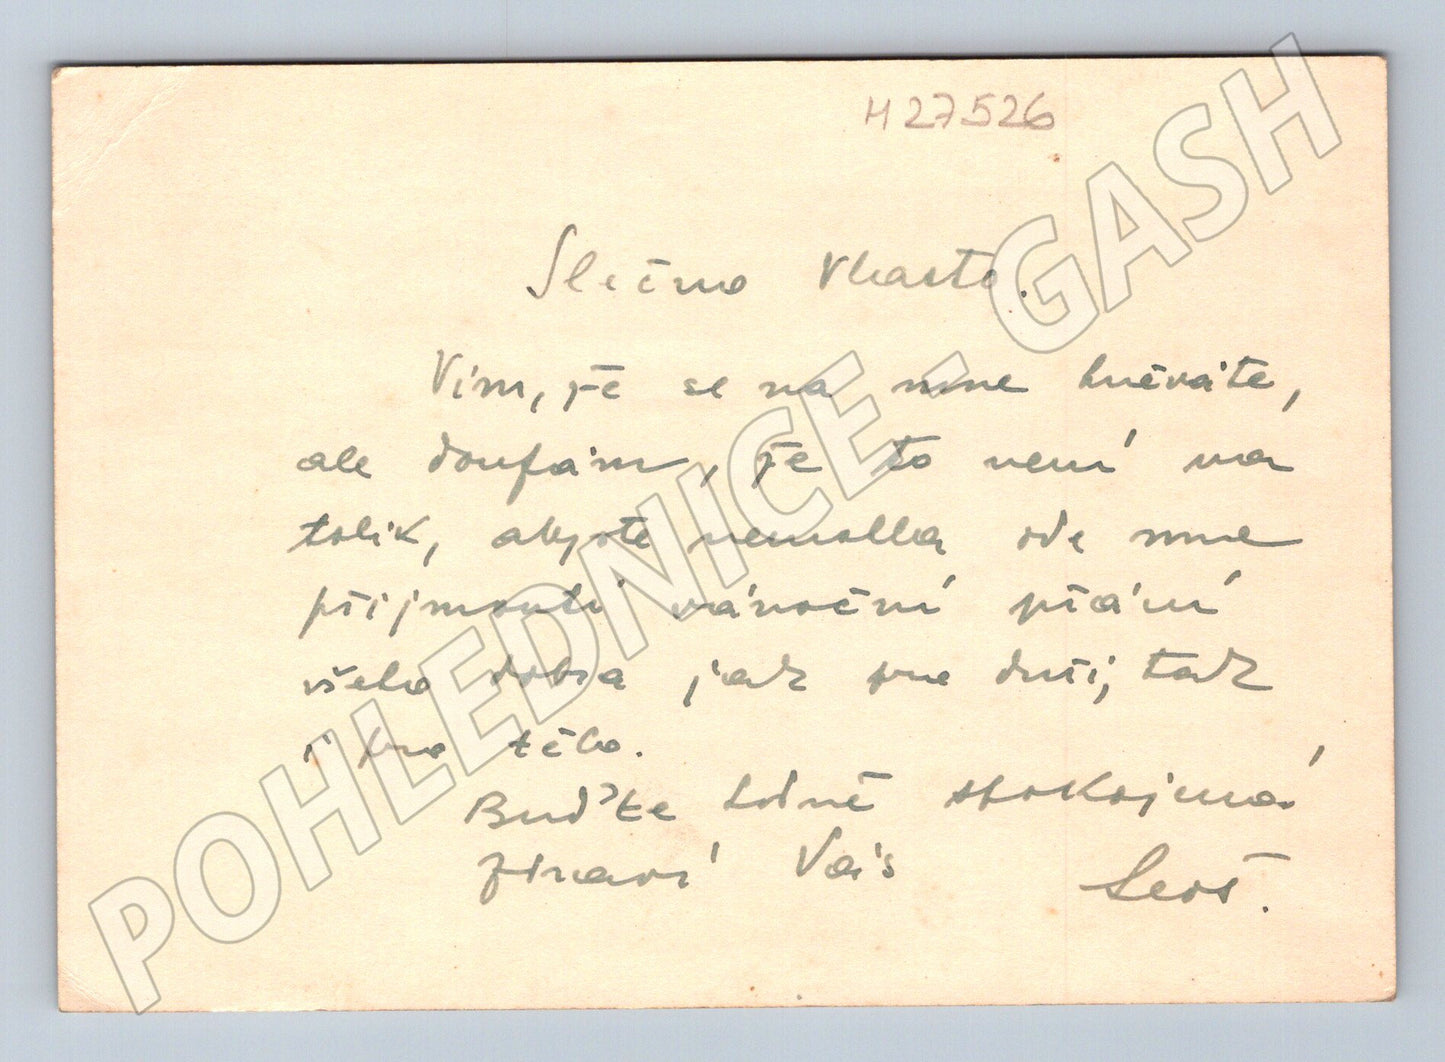 H 27526
Slečno Vlasto.
Vím, že se na mne hněváte,
ale doufám, že to není na
tolik, abyste nemohla ode mne
přijmouti vánoční přání
všeho dobra jak pro duši, tak
i pro tělo.
Buďte hodně spokojená,
zdraví Vás Leoš.
POHLEDNICE - GASH